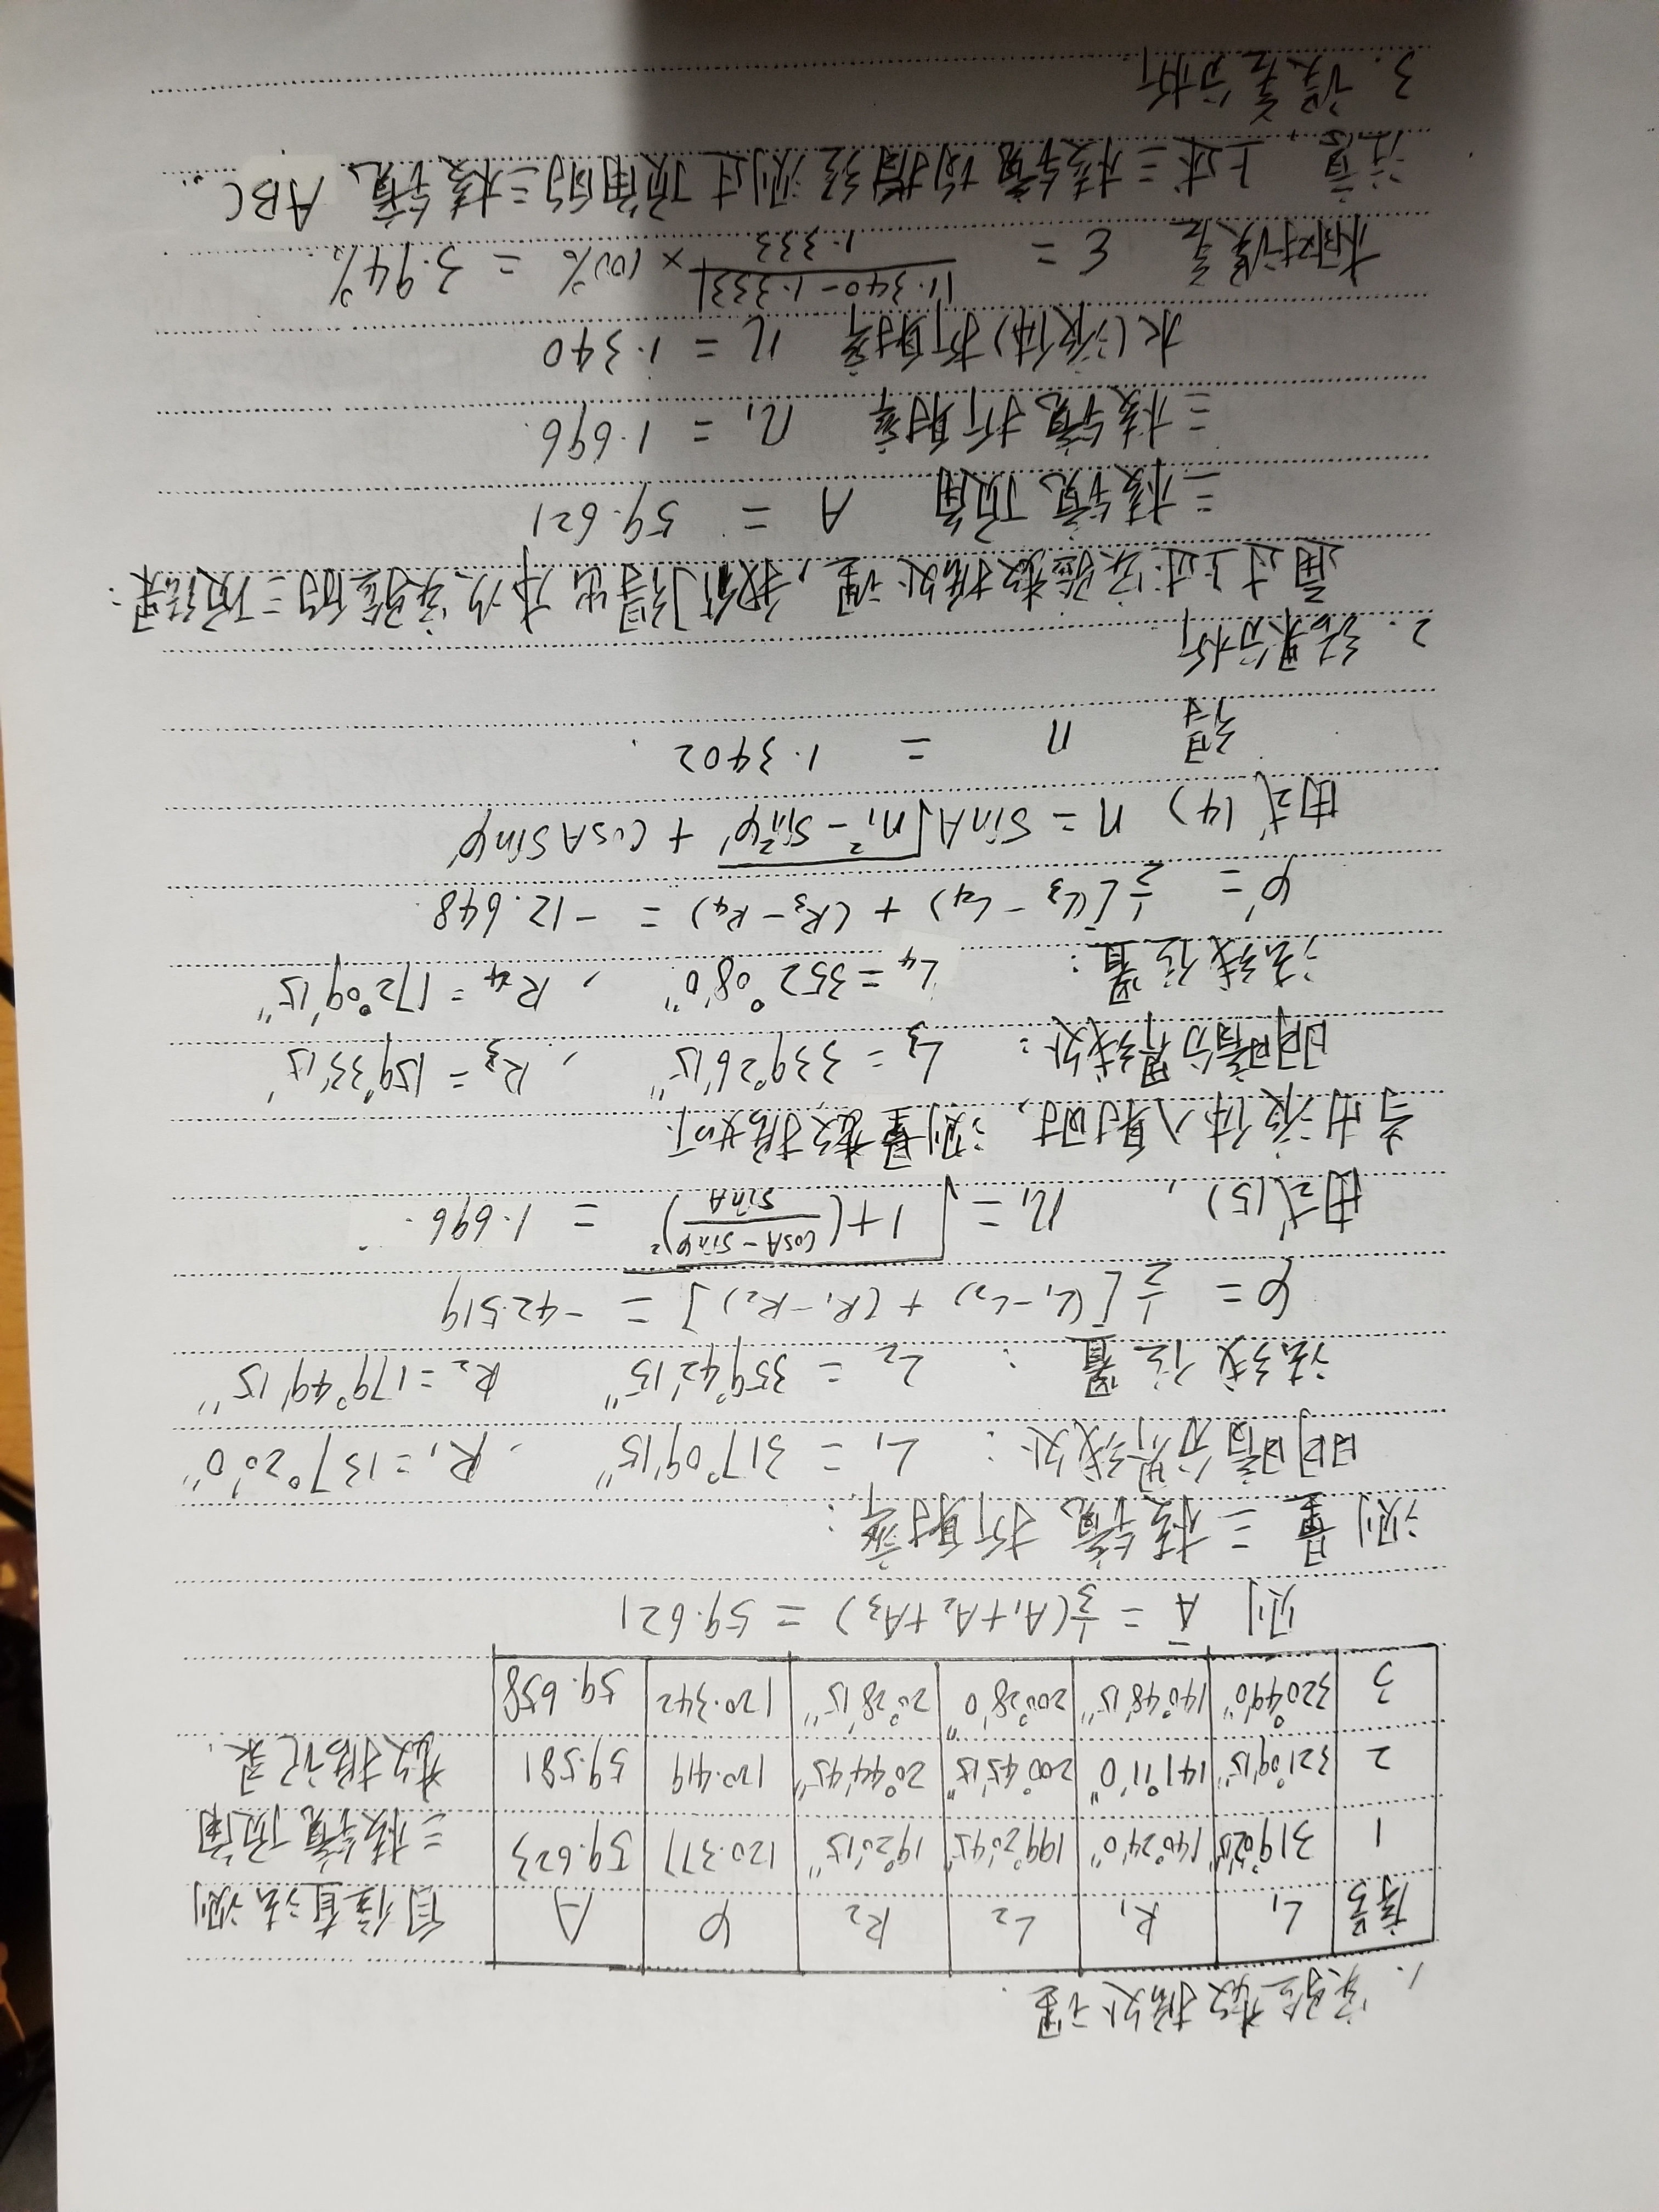 1. 实验数据处理.
序号 L₁ R₁ L₂ R₂ φ A
1 319°02′15″ 140°24′0″ 199°20′45″ 19°20′15″ 120.377 59.623
2 321°09′15″ 141°11′0″ 200°45′15″ 20°44′45″ 120.419 59.581
3 320°49′0″ 140°48′15″ 200°28′0″ 20°28′15″ 120.342 59.658
自准直法测
三棱镜顶角
数据记录.
则 A̅ = ⅓(A₁+A₂+A₃) = 59.621
测量三棱镜折射率:
明暗分界线处: L₁ = 317°09′15″, R₁=137°20′0″
法线位置: L₂ = 359°42′15″ R₂=179°49′15″
φ = ½[(L₁-L₂) + (R₁-R₂)] = -42.519
由式(5), n₁ = √(1+((cosA-sinφ)/sinA)²) = 1.696.
当由液体入射时, 测量数据如下
明暗分界线处: L₃ = 339°26′15″, R₃=159°33′15″
法线位置: L₄=352°08′0″, R₄=172°09′15″
φ′ = ½[(L₃-L₄) + (R₃-R₄) = -12.648
由式(4) n = sinA√(n₁²-sin²φ′) + cosAsinφ′
得 n = 1.3402.
2. 结果分析
通过上述实验数据处理, 我们得出本次实验的三项结果:
三棱镜顶角 A = 59.621
三棱镜折射率 n₁ = 1.696.
水(液体)折射率 n = 1.340
相对误差 ε = |1.340-1.333|/1.333 × 100% = 3.94%
注意, 上述三棱镜均指经测过顶角的三棱镜 ABC.
3. 误差分析